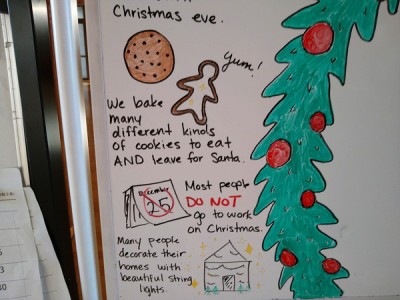 Christmas eve.
Yum!
We bake
many
different kinds
of cookies to eat
AND leave for Santa.
December
25
Most people
DO NOT
go to work
on Christmas.
Many people
decorate their
homes with
beautiful string
lights.